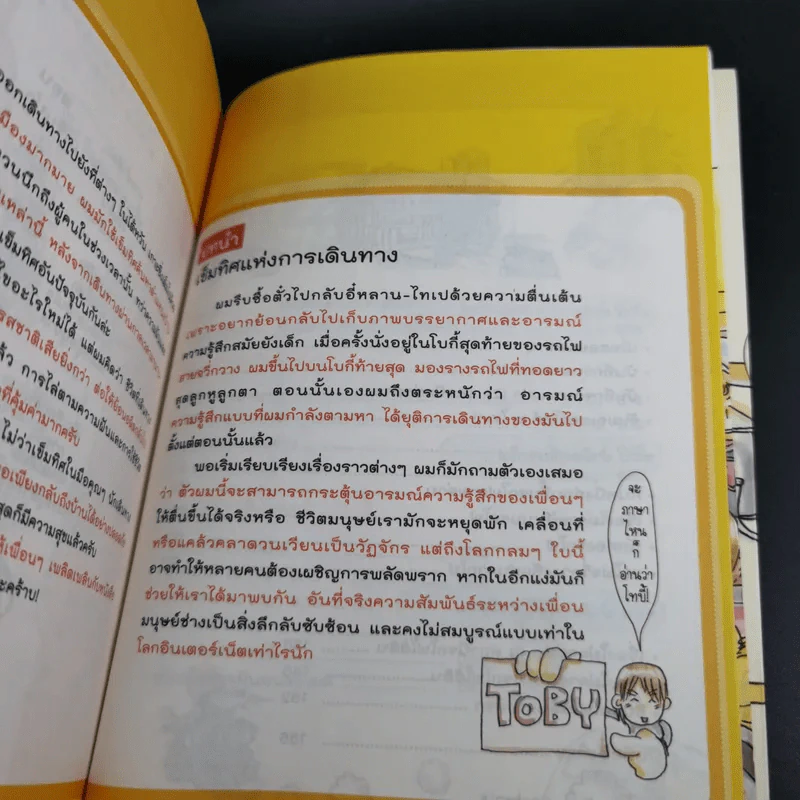 อกเดินทางไปยังที่ต่างๆ ในไต้หวัน
มืองมากมาย ผมมักใช้เข็มทิศ
วนนึกถึงผู้คนในช่วงเวลานั้น
เหล่านี้ หลังจากเดินทางผ่าน
เข็มทิศอันปัจจุบันล่ะ
ไขอะไรใหม่ได้ แต่ผมคิดว่า
รสชาติเสียยิ่งกว่า
ล้ว การไล่ตามความฝันและการใช้ชีวิต
ที่คุ้มค่ามากครับ
ไม่ว่าเข็มทิศในมือคุณๆ
อเพียงกลับถึงบ้านได้อย่างปลอดภัย
สุดก็มีความสุขแล้วครับ
ให้เพื่อนๆ เพลิดเพลินกับหนังสือ
ะคร้าบ!
บทนำ
เข็มทิศแห่งการเดินทาง
ผมรีบซื้อตั๋วไปกลับอี๋หลาน-ไทเปด้วยความตื่นเต้น
เพราะอยากย้อนกลับไปเก็บภาพบรรยากาศและอารมณ์
ความรู้สึกสมัยยังเด็ก เมื่อครั้งนั่งอยู่ในโบกี้สุดท้ายของรถไฟ
สายจวี่กวาง ผมขึ้นไปบนโบกี้ท้ายสุด มองรางรถไฟที่ทอดยาว
สุดลูกหูลูกตา ตอนนั้นเองผมถึงตระหนักว่า อารมณ์
ความรู้สึกแบบที่ผมกำลังตามหา ได้ยุติการเดินทางของมันไป
ตั้งแต่ตอนนั้นแล้ว
พอเริ่มเรียบเรียงเรื่องราวต่างๆ ผมก็มักถามตัวเองเสมอ
ว่า ตัวผมนี้จะสามารถกระตุ้นอารมณ์ความรู้สึกของเพื่อนๆ
ให้ตื่นขึ้นได้จริงหรือ ชีวิตมนุษย์เรามักจะหยุดพัก เคลื่อนที่
หรือแคล้วคลาดวนเวียนเป็นวัฏจักร แต่ถึงโลกกลมๆ ใบนี้
อาจทำให้หลายคนต้องเผชิญการพลัดพราก หากในอีกแง่มันก็
ช่วยให้เราได้มาพบกัน อันที่จริงความสัมพันธ์ระหว่างเพื่อน
มนุษย์ช่างเป็นสิ่งลึกลับซับซ้อน และคงไม่สมบูรณ์แบบเท่าใน
โลกอินเตอร์เน็ตเท่าไรนัก
จะ
ภาษา
ไหน
ก็
อ่านว่า
โทบี้!
TOBY